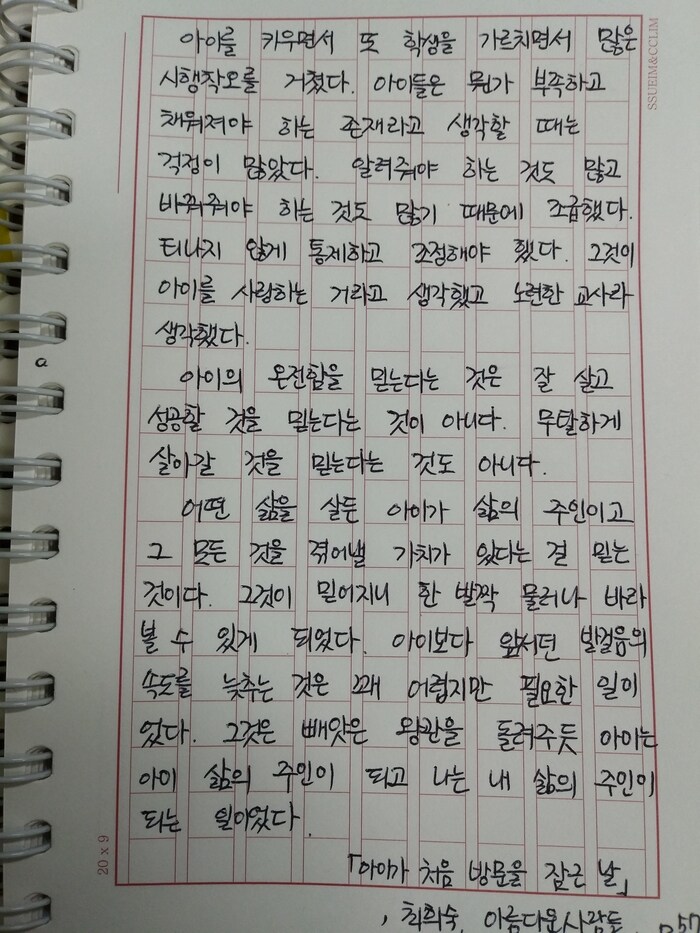 아이를 키우면서 또 학생을 가르치면서 많은
시행착오를 거쳤다. 아이들은 뭔가 부족하고
채워져야 하는 존재라고 생각할 때는
걱정이 많았다. 알려줘야 하는 것도 많고
바꿔줘야 하는 것도 많기 때문에 조급했다.
티나지 않게 통제하고 조정해야 했다. 그것이
아이를 사랑하는 거라고 생각했고 노련한 교사라
생각했다.
아이의 온전함을 믿는다는 것은 잘 살고
성공할 것을 믿는다는 것이 아니다. 무탈하게
살아갈 것을 믿는다는 것도 아니다.
어떤 삶을 살든 아이가 삶의 주인이고
그 모든 것을 겪어낼 가치가 있다는 걸 믿는
것이다. 그것이 믿어지니 한 발짝 물러나 바라
볼 수 있게 되었다. 아이보다 앞서던 발걸음의
속도를 늦추는 것은 꽤 어렵지만 필요한 일이
었다. 그것은 빼앗은 왕관을 돌려주듯 아이는
아이 삶의 주인이 되고 나는 내 삶의 주인이
되는 일이었다.
「아이가 처음 방문을 잠근 날」
, 최희숙, 아름다운사람들, p57
SSUEIM&CCLIM
20 x 9
a